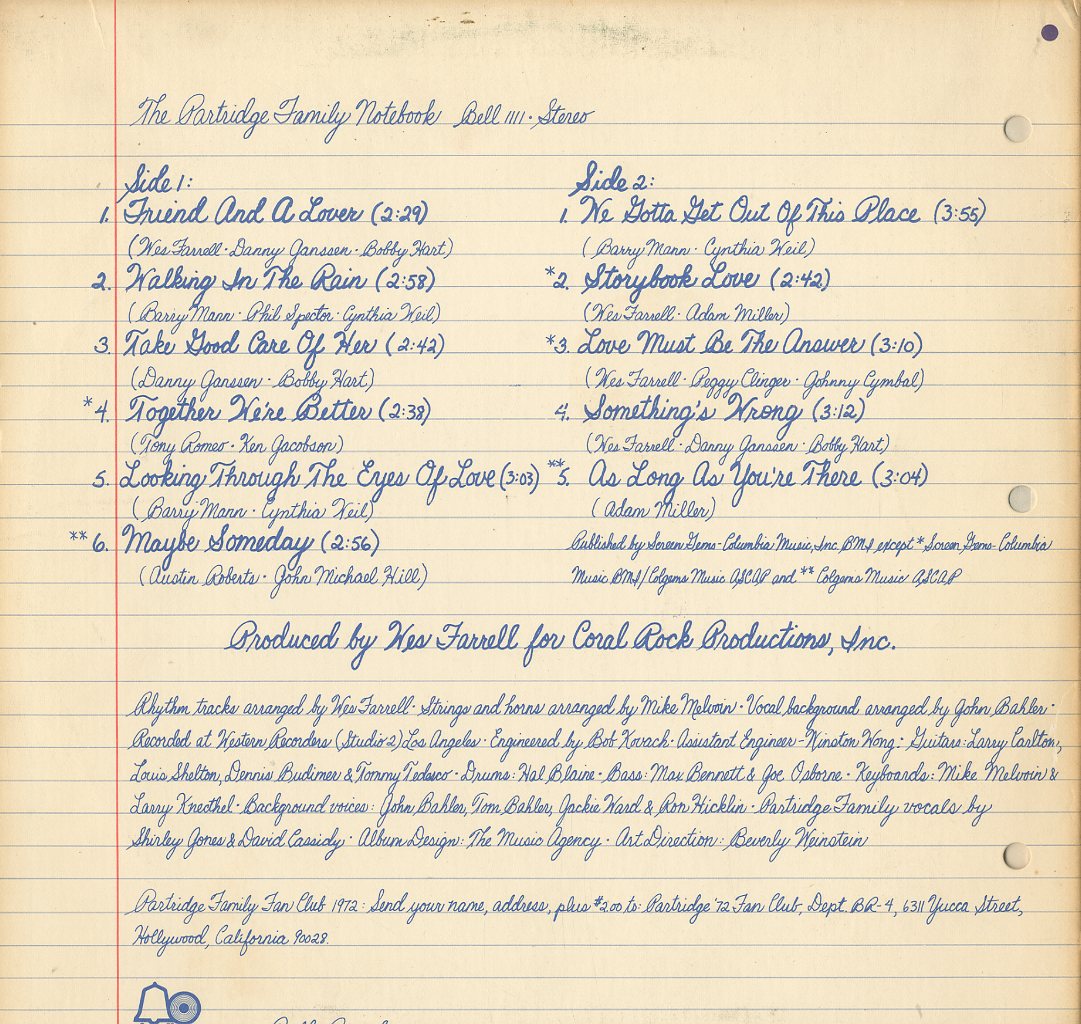 The Partridge Family Notebook Bell 1111 · Stereo
Side 1:
1. Friend And A Lover (2:29)
(Wes Farrell · Danny Janssen · Bobby Hart)
2. Walking In The Rain (2:58)
(Barry Mann · Phil Spector · Cynthia Weil)
3. Take Good Care Of Her (2:42)
(Danny Janssen · Bobby Hart)
*4. Together We're Better (2:38)
(Tony Romeo · Ken Jacobson)
5. Looking Through The Eyes Of Love (3:03)
(Barry Mann · Cynthia Weil)
**6. Maybe Someday (2:56)
(Austin Roberts · John Michael Hill)
Side 2:
1. We Gotta Get Out Of This Place (3:55)
(Barry Mann · Cynthia Weil)
*2. Storybook Love (2:42)
(Wes Farrell · Adam Miller)
*3. Love Must Be The Answer (3:10)
(Wes Farrell · Peggy Clinger · Johnny Cymbal)
4. Something's Wrong (3:12)
(Wes Farrell · Danny Janssen · Bobby Hart)
**5. As Long As You're There (3:04)
(Adam Miller)
Published by Screen Gems-Columbia Music, Inc. BMI, except * Screen Gems-Columbia
Music BMI/Colgems Music ASCAP and ** Colgems Music ASCAP
Produced by Wes Farrell for Coral Rock Productions, Inc.
Rhythm tracks arranged by Wes Farrell · Strings and horns arranged by Mike Melvoin · Vocal background arranged by John Bahler ·
Recorded at Western Recorders (Studio 2) Los Angeles · Engineered by Bob Kovach · Assistant Engineer - Winston Wong · Guitars: Larry Carlton,
Louis Shelton, Dennis Budimer & Tommy Tedesco · Drums: Hal Blaine · Bass: Max Bennett & Joe Osborne · Keyboards: Mike Melvoin &
Larry Knecthel · Background voices: John Bahler, Tom Bahler, Jackie Ward & Ron Hicklin · Partridge Family vocals by
Shirley Jones & David Cassidy · Album Design: The Music Agency · Art Direction: Beverly Weinstein
Partridge Family Fan Club 1972: Send your name, address, plus $2.00 to: Partridge '72 Fan Club, Dept. BR-4, 6311 Yucca Street,
Hollywood, California 90028.